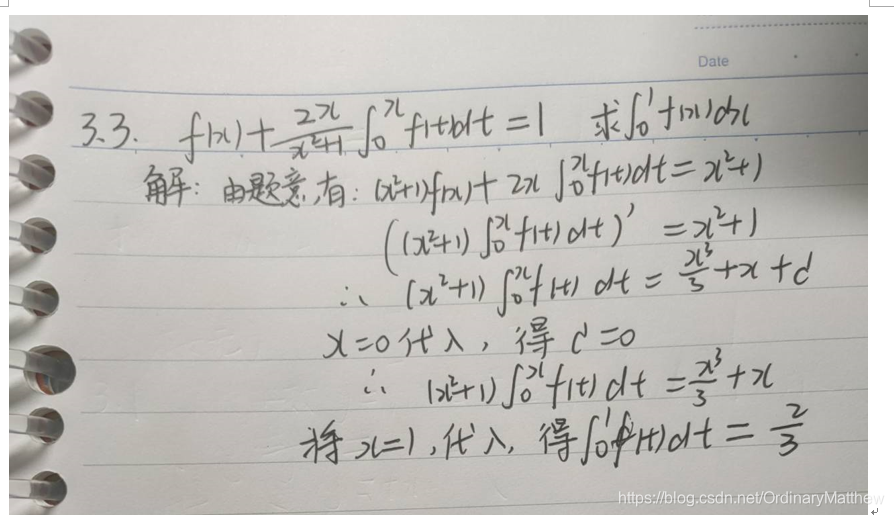 Date
3.3. f(x)+\frac{2x}{x²+1}∫₀ˣf(t)dt=1 求∫₀¹f(x)dx
解：由题意，有：(x²+1)f(x)+2x∫₀ˣf(t)dt=x²+1
((x²+1)∫₀ˣf(t)dt)'=x²+1
∴ (x²+1)∫₀ˣf(t)dt=\frac{x³}{3}+x+C
x=0代入，得C=0
∴ (x²+1)∫₀ˣf(t)dt=\frac{x³}{3}+x
将x=1，代入，得∫₀¹f(t)dt=\frac{2}{3}
https://blog.csdn.net/OrdinaryMatthew